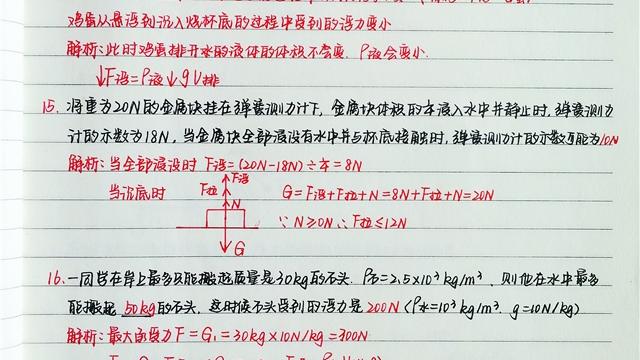 鸡蛋从悬浮到沉入烧杯底的过程中受到的浮力变小
解析:此时鸡蛋排开水的液体的体积不会变. ρ液会变小.
↓F浮=ρ液↓gV排
15. 将重为20N的金属块挂在弹簧测力计下, 金属块体积的¼浸入水中并静止时, 弹簧测力
计的示数为18N, 当金属块全部浸没有水中并与杯底接触时, 弹簧测力计的示数可能为10N
解析: 当全部浸没时 F浮=(20N-18N)÷¼=8N
F浮
当沉底时 F拉 G=F浮+F拉+N=8N+F拉+N=20N
N ∵N≥0N ∴F拉≤12N
G
16. 一同学在岸上最多只能搬起质量是30kg的石头. ρ石=2.5×10³kg/m³, 则他在水中最多
能搬起 50kg的石头, 这时候石头受到的浮力是200N(ρ水=10³kg/m³. g=10N/kg)
解析: 最大承受力F=G₁=30kg×10N/kg=300N